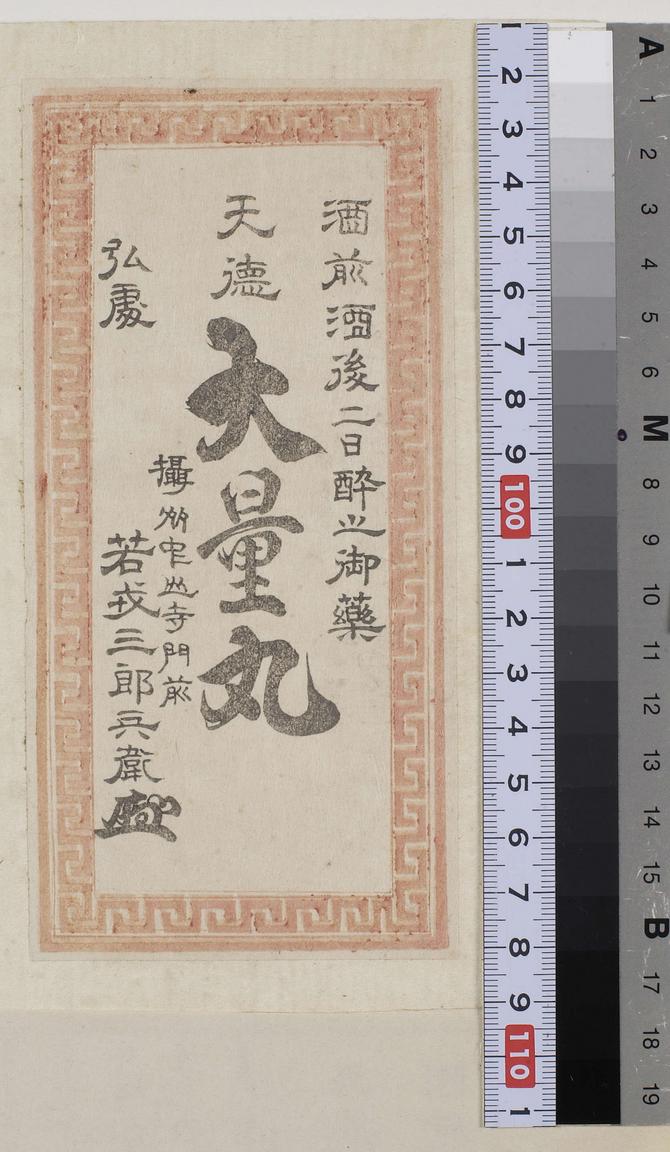 酒前酒後二日酔之御薬
天徳
大量丸
攝州中山寺門前
弘處
若戎三郎兵衛
1 2 3 4 5 6 7 8 9 100 1 2 3 4 5 6 7 8 9 110 1
A 1 2 3 4 5 6 M 8 9 10 11 12 13 14 15 B 17 18 19